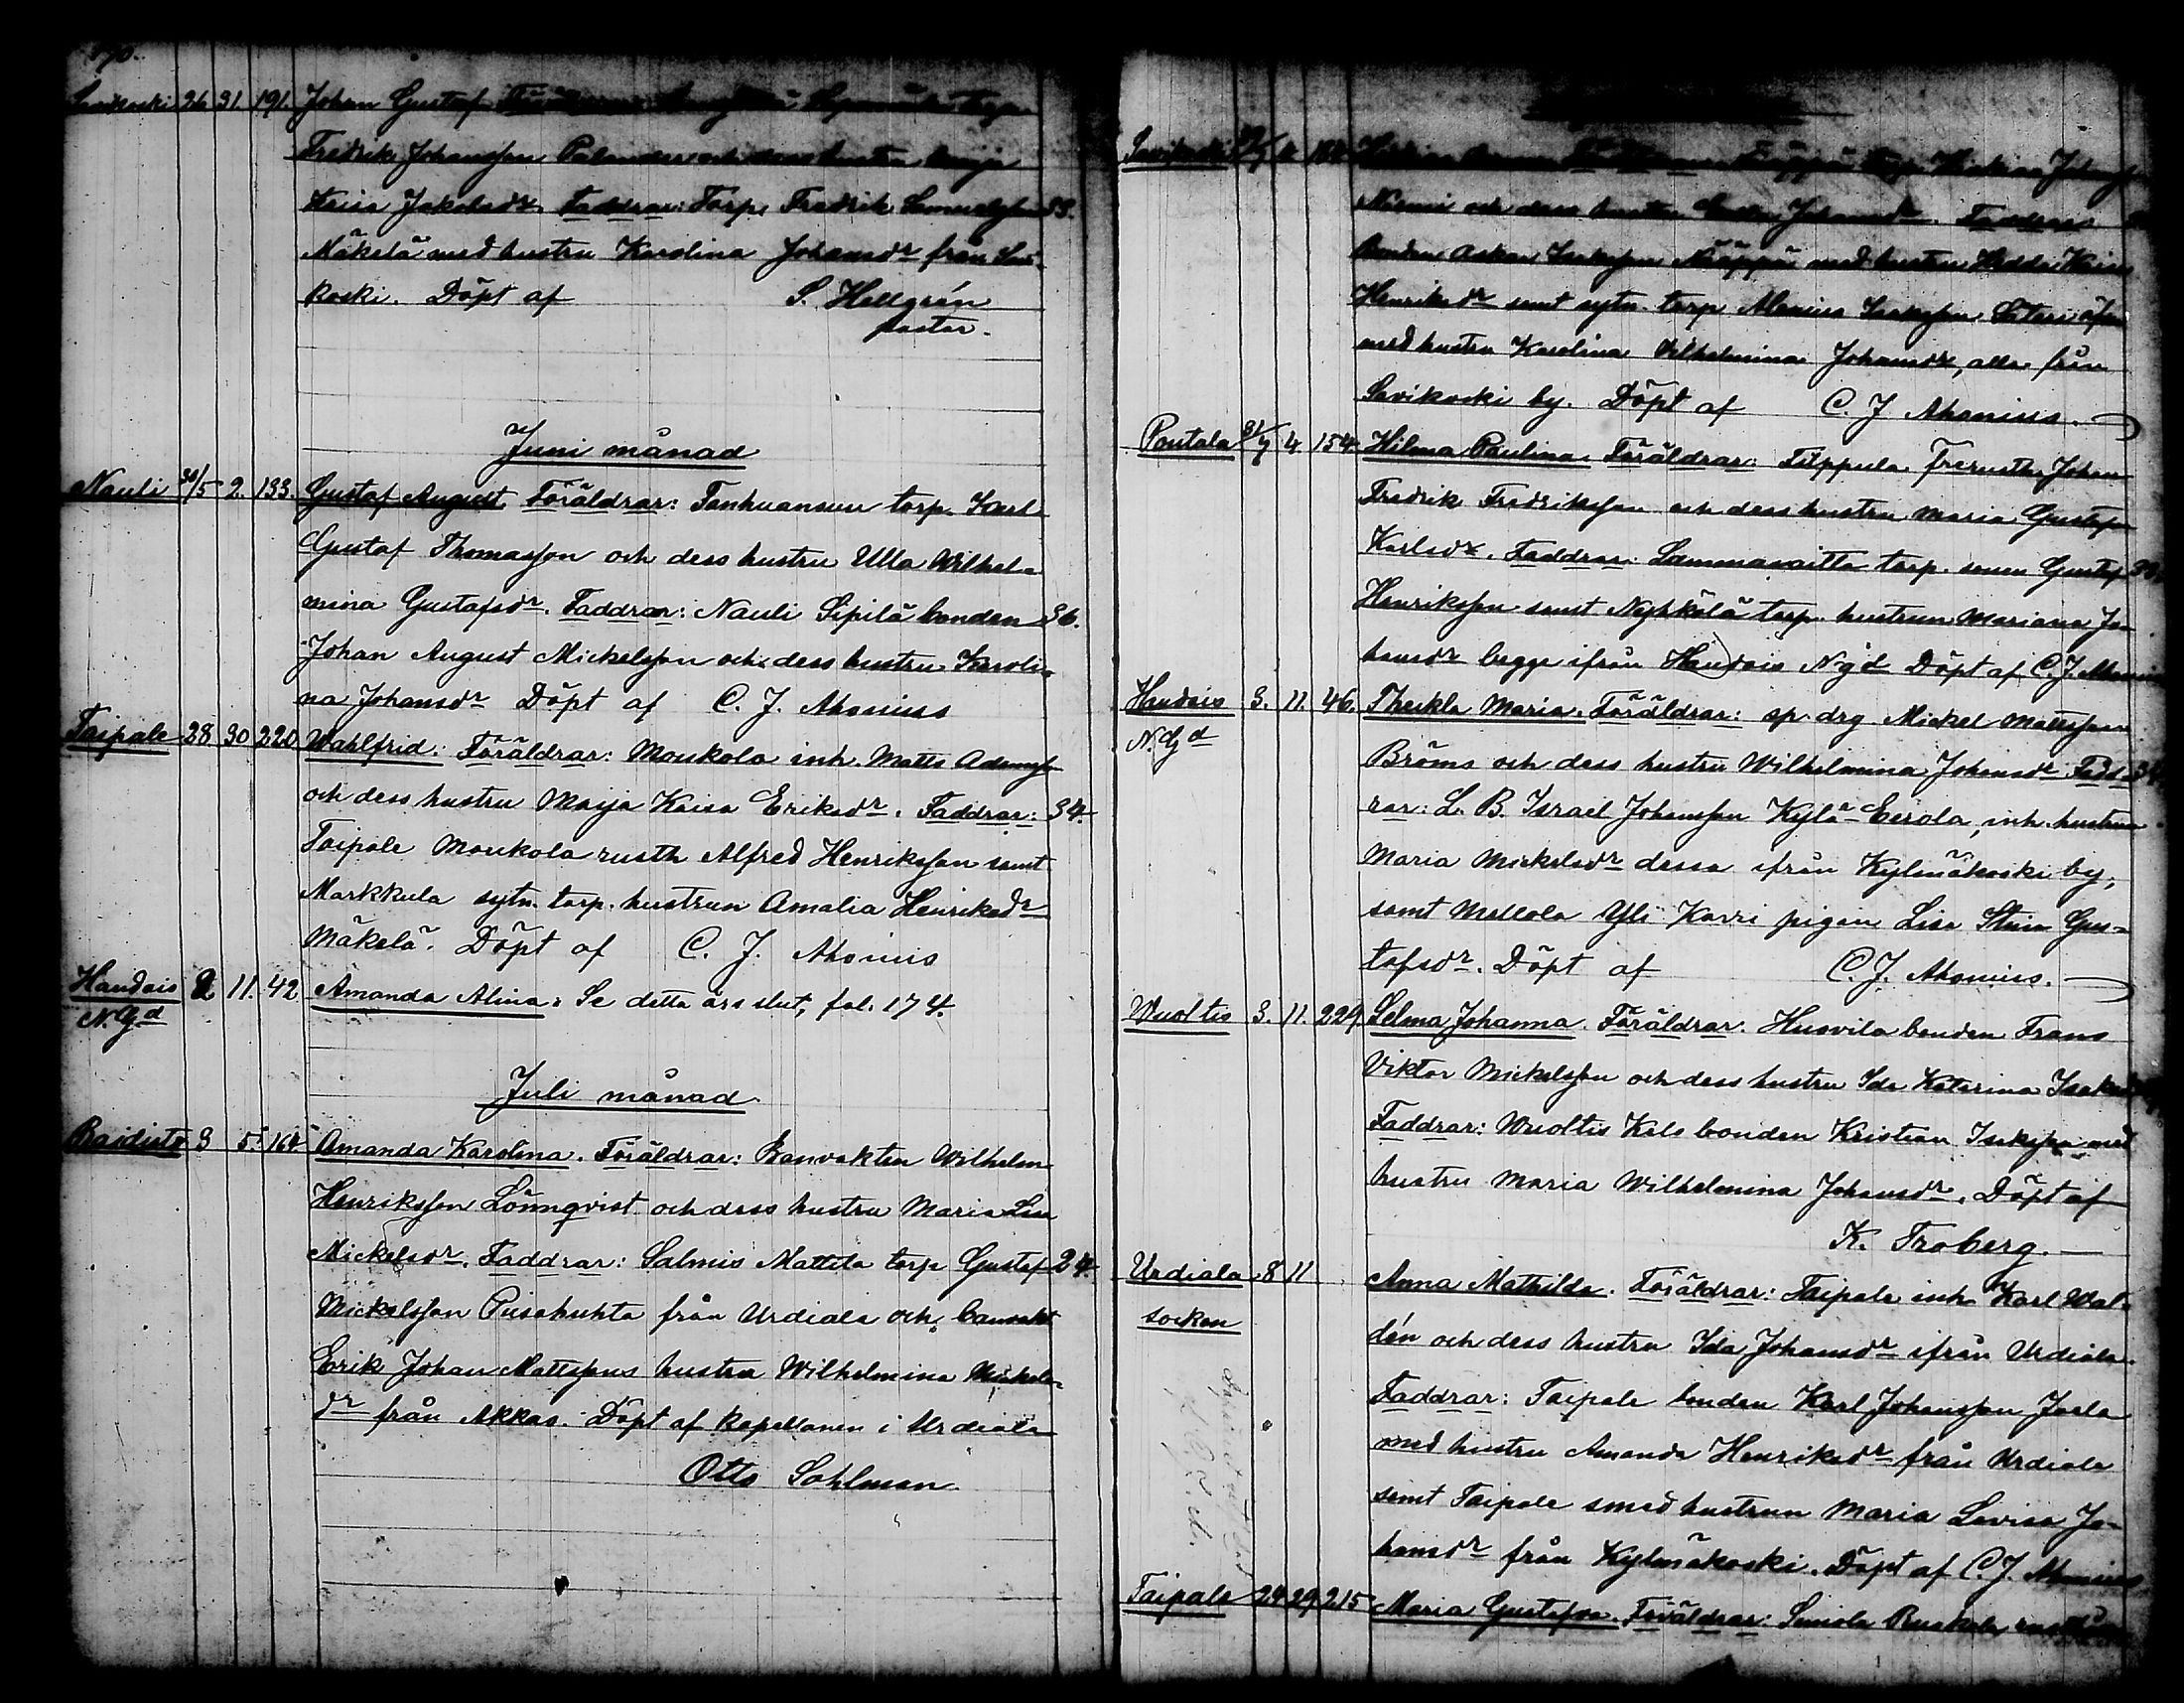 170.
Savikoski 26 31. 191. Johan Gustaf Föräldrar torp.
Fredrik Johansson Palander och dess hustru Maija
Kaisa Jakobsdr. Faddrar: Torp. Fredrik Samuelsson 33.
Mäkelä med hustru Karolina Johansdr från Savi-
koski. Döpt af S. Hellgrén
pastor.
Juni månad
Nauli 30/5 2. 133. Gustaf August Föräldrar: Tanhuansuu torp. Karl
Gustaf Thomasson och dess hustru Ulla Wilhel-
mina Gustafsdr. Faddrar: Nauli Sipilä bonden 36.
Johan August Mickelsson och dess hustru Karoli-
na Johansdr Döpt af C. J. Ahonius
Taipale 28 30 220 Wahlfrid. Föräldrar: Moukola inh. Matts Adamsson
och dess hustru Maija Kaisa Eriksdr. Faddrar: 34.
Taipale Moukola rusth Alfred Henriksson samt
Markkula sytn. torp. hustrun Amalia Henriksdr
Mäkelä. Döpt af C. J. Ahonius
Haudais 2 11. 42 Amanda Alina. Se detta års slut, fol. 174.
N. Gd
Juli månad
3 5. 164 Amanda Karolina. Föräldrar: Banvakten Wilhelm
Henriksson Lönnqvist och dess hustru Maria Lisa
Mickelsdr. Faddrar: Salmis Mattila torp Gustaf 24.
Mickelsson Pusahuhta från Urdiala och banvakt
Erik Johan Mattssons hustru Wilhelmina Mickels-
dr från Akkas. Döpt af kapellanen i Urdiala
Otto Sohlman.
Savikoski 4 Föräldrar Näppi torp. Johansson
Niemi och dess hustru Johansdr. Faddrar:
bonden Oskar Isaksson Näppi med hustru Hedda Kaisa
Henriksdr samt sytn. torp Alexius Isaksson
med hustru Karolina Vilhelmina Johansdr, alla från
Savikoski by. Döpt af C. J Ahonius.
Pontala 31/7 4. 154. Hilma Paulina. Föräldrar: Filppula Frerusth. Johan
Fredrik Fredriksson och dess hustru Maria Gustafva
Karlsdr. Faddrar: Sammavaitta torp. sonen Gustaf 33.
Henriksson samt Nyhkälä torp. hustrun Mariana Jo-
hansdr begge ifrån Haudais N. gd Döpt af C. J. Ahonius
Haudais 3. 11. 46. Theikla Maria. Föräldrar: sp. drg Mickel Mattsson
N. Gd
Bröms och dess hustru Wilhelmina Johansdr Fadd- 34.
rar: L. B. Israel Johansson Kylä-Eerola, inh. hustrun
Maria Mickelsdr dessa ifrån Kylmäkoski by;
samt Mellola Yli Karri pigan Lisa Stina Gus-
tafsdr. Döpt af C. J. Ahonius.
Wuoltis 3. 11. 229. Selma Johanna. Föräldrar. Huovila bonden Frans
Viktor Mickelsson och dess hustru Ida Katarina Isaksdr
Faddrar: Wuoltis Kels bonden Kristian Isaksson med
hustru Maria Wilhelmina Johansdr. Döpt af
K. Troberg.
Urdiala 8 11 Anna Mathilda. Föräldrar: Taipale inh Karl Wal-
socken
dén och dess hustru Ida Johansdr ifrån Urdiala.
Faddrar: Taipale bonden Karl Johansson Jasla
med hustru Amanda Henriksdr från Urdiala
samt Taipale smed hustrun Maria Lovisa Jo-
hansdr från Kylmäkoski. Döpt af C J. Ahonius
Taipale 24 29 215 Maria Gustafva. Föräldrar: Simola Ruskola